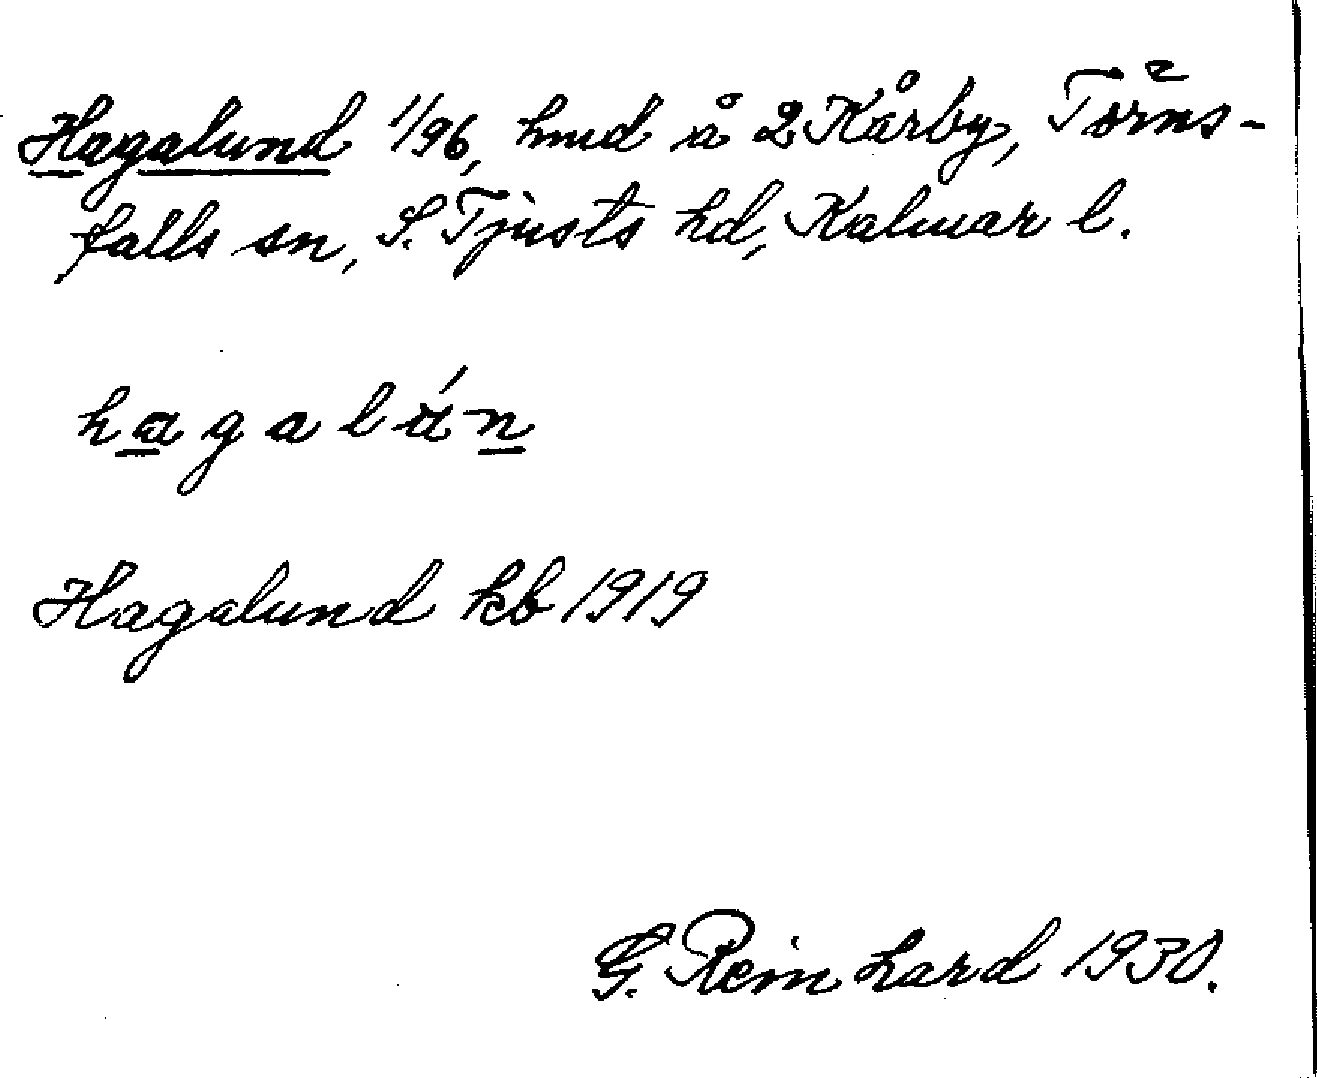 Hagalund 1/96, hmd å 2 Kårby, Törns-
falls sn, S. Tjusts hd, Kalmar l.
hagalán
Hagalund kb 1919
G. Reinhard 1930.